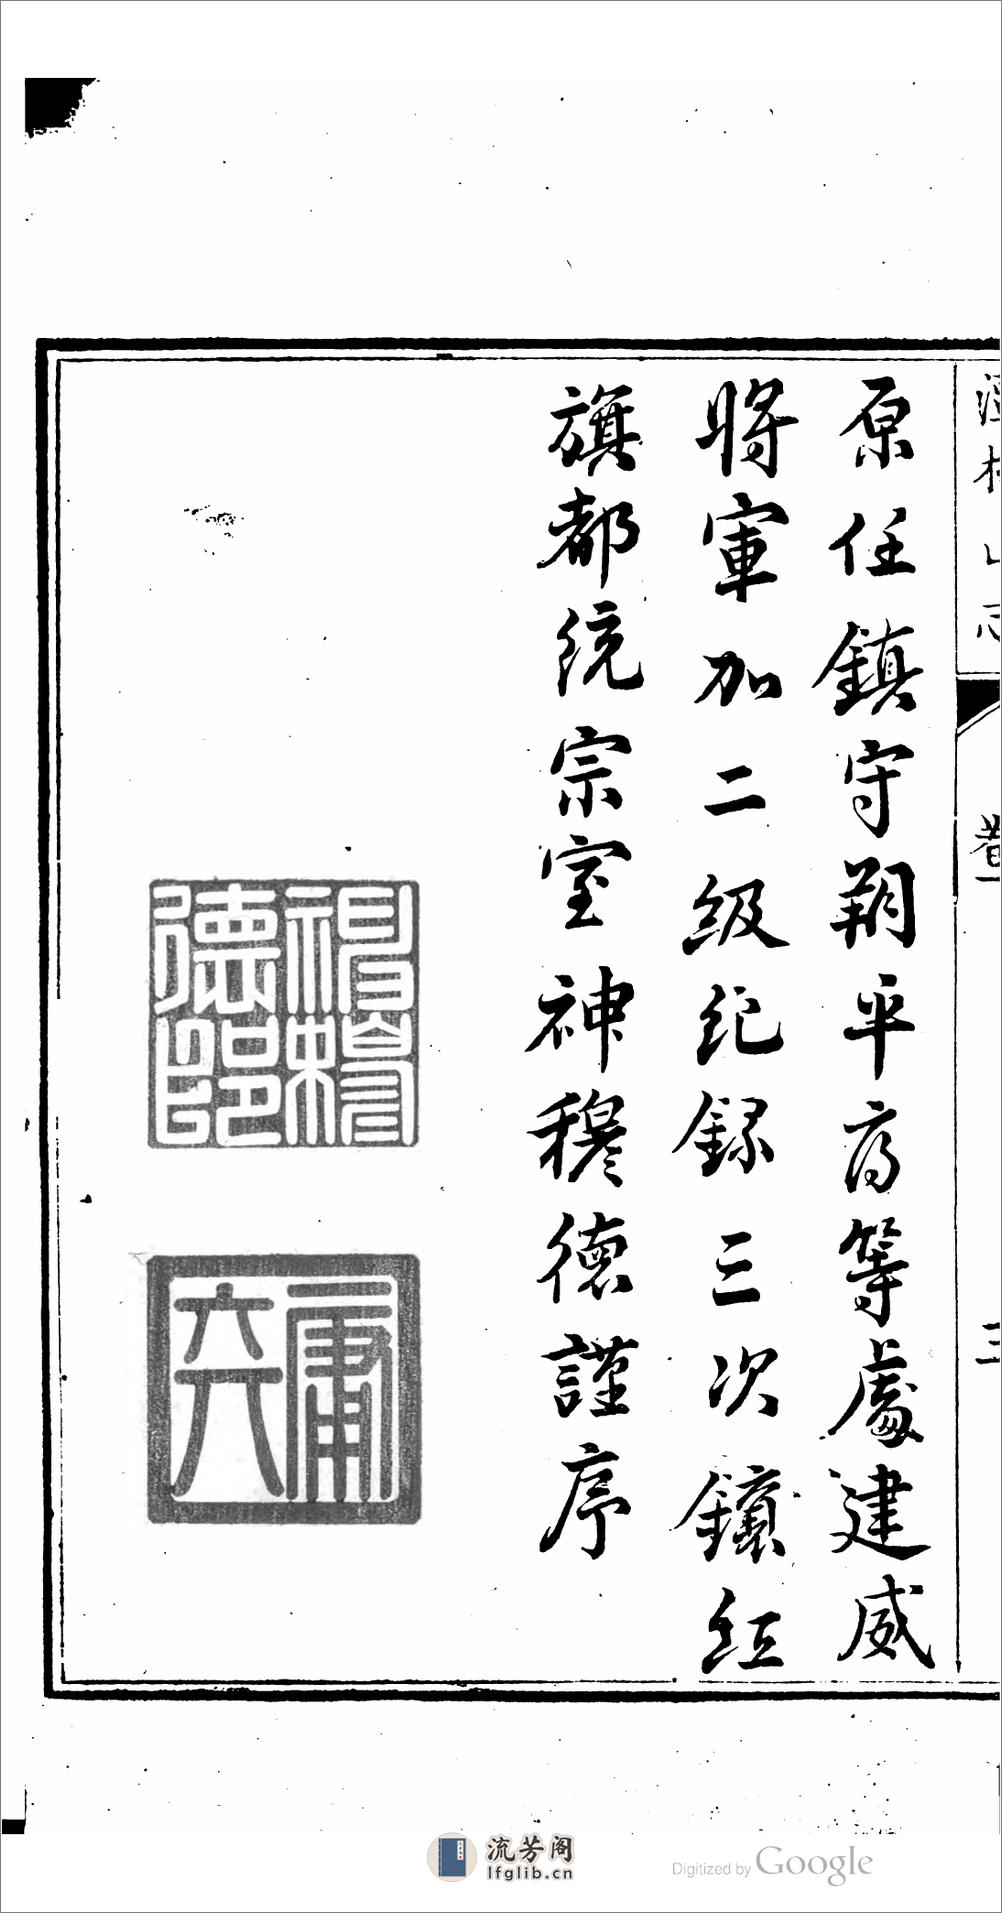 卷一
三
原任鎮守朔平府等處建威
將軍加二級紀録三次鑲紅
旗都統宗室神穆德謹序
神穆德印
甫六
流芳阁
lfglib.cn
Digitized by Google